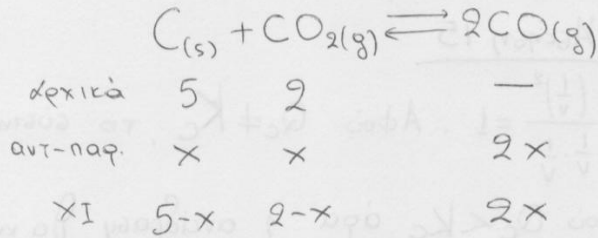 C(s) + CO2(g) ⇌ 2CO(g)
αρχικά 5 2 —
αντ-παρ. x x 2x
ΧΙ 5-x 2-x 2x